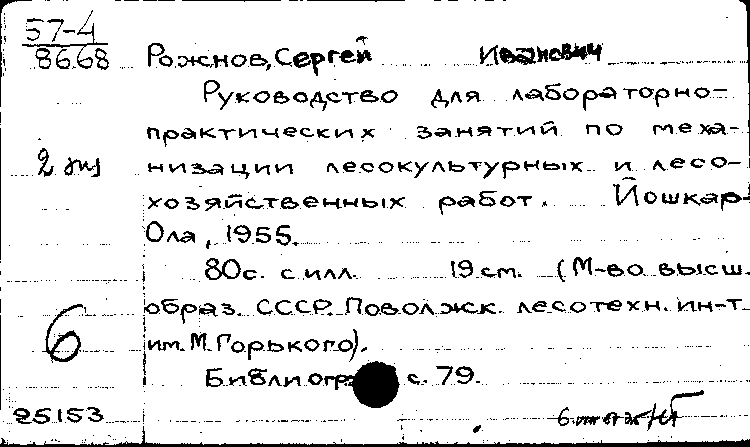 57-4
8668
Рожнов, Сергей Иванович
Руководство для лабораторно-
практических занятий по меха-
2 экз низации лесокультурных и лесо-
хозяйственных работ. Йошкар-
Ола, 1955.
80с. с илл. 19 см. (М-во высш.
образ. СССР. Поволжск. лесотехн. ин-т
6
им. М. Горького).
с. 79.
25153